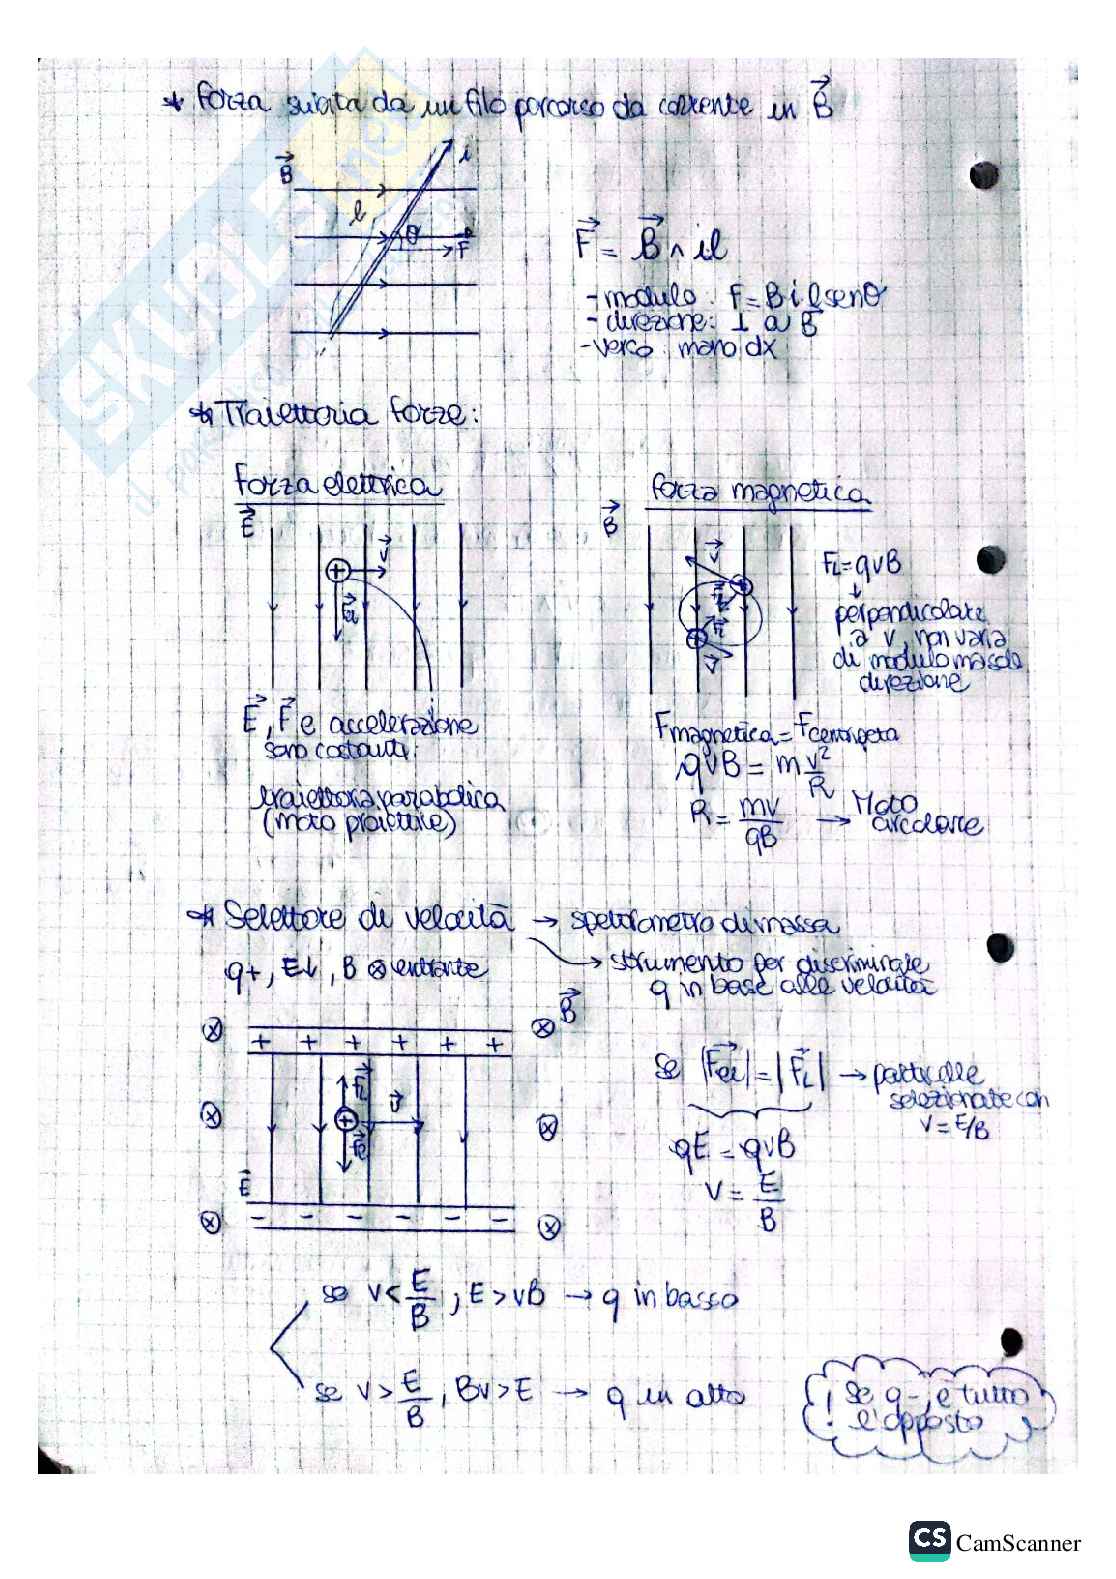 * Forza subita da un filo percorso da corrente in B⃗
B⃗
i
l
θ
F
F⃗ = B⃗ ∧ il
- modulo: F = B i l senθ
- direzione: ⊥ a B
- verso: mano dx
* Traiettoria forze:
Forza elettrica
E⃗
v⃗
F⃗el
E⃗, F⃗ e accelerazione
sono costanti
traiettoria parabolica
(moto proiettile)
Forza magnetica
B⃗
v⃗
F⃗L
F⃗L
v⃗
FL = qvB
↓
perpendicolare
a v, non varia
di modulo ma solo
direzione
Fmagnetica = Fcentripeta
qvB = m v²/R
R = mv/qB → Moto
circolare
* Selettore di velocità → spettrometro di massa
→ strumento per discriminare
q in base alle velocità
q+, E↓, B ⊗ entrante
B⃗
+ + + + + +
F⃗L
v⃗
F⃗el
E⃗
− − − − − −
Se |F⃗el| = |F⃗L| → particelle
selezionate con
v = E/B
qE = qvB
v = E/B
se v < E/B, E > vB → q in basso
se v > E/B, Bv > E → q in alto
! Se q-, è tutto
l'opposto
SKUOLA.net
CS CamScanner